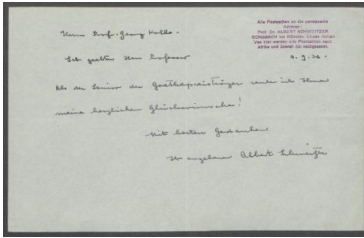 Alle Postsachen an die permanente
Adresse:
Prof. Dr. ALBERT SCHWEITZER
GUNSBACH bei Münster, Elsass
Von hier werden alle Postsachen nach
Afrika und überall hin nachgesandt.
Herrn Prof. Georg Kolbe
4. 9. 36
Sehr geehrter Herr Professor
Als der Senior der Goethepreisträger sende ich Ihnen
meine herzlichen Glückwünsche!
Mit besten Gedanken
Ihr ergebener Albert Schweitzer